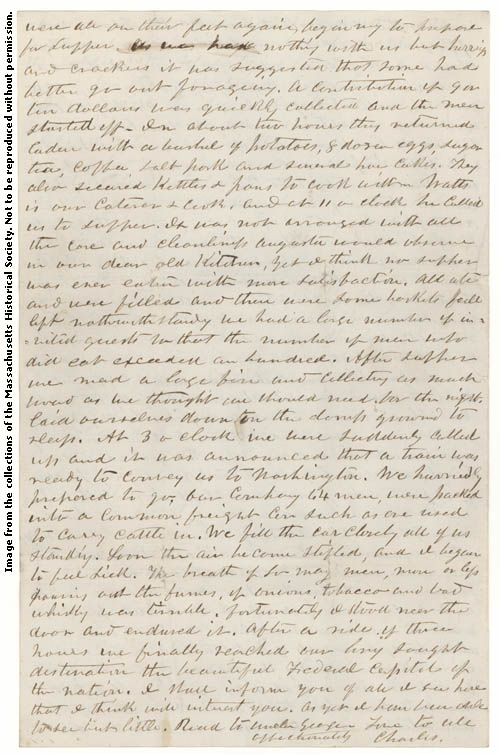 were all on their feet again, beginning to prepare
for supper. As we had nothing with us but herrings
and crackers it was suggested that some had
better go out foraging. A contribution of
ten dollars was quickly collected and the men
started off. In about two hours they returned
laden with a bushel of potatoes, 8 dozen eggs, sugar
tea, coffee, salt pork and several hoe cakes. They
also secured kettles & pans to cook with. Watts
is our caterer & cook, and at 11 o clock he called
us to supper. It was not arranged with all
the care and cleanliness Augusta would observe
in our dear old kitchen, yet I think no supper
was ever eaten with more satisfaction. All ate
and were filled and there were some baskets full
left notwithstandg we had a large number of in-
-vited guests so that the number of men who
did eat exceeded an hundred. After supper
we made a large fire and collecting as much
wood as we thought we should need for the night
laid ourselves down on the damp ground to
sleep. At 3 o clock we were suddenly called
up and it was announced that a train was
ready to convey us to Washington. We hurriedly
prepared to go, our Company 64 men, were packed
into a common freight car such as are used
to carry cattle in. We fill the car closely all of us
standing. Soon the air became stifled, and I began
to feel sick. The breath of so many men, more or less
pouring out the fumes, of onions, tobacco and bad
whisky was terrible. Fortunately I stood near the
door and endured it. After a ride of three
hours we finally reached our long sought
destination the beautiful Federal Capitol of
the nation. I shall inform you of all I see here
that I think will interest you. As yet I have been able
to see but little. Read to Uncle George Love to all
affectionately Charles.
Image from the collections of the Massachusetts Historical Society. Not to be reproduced without permission.